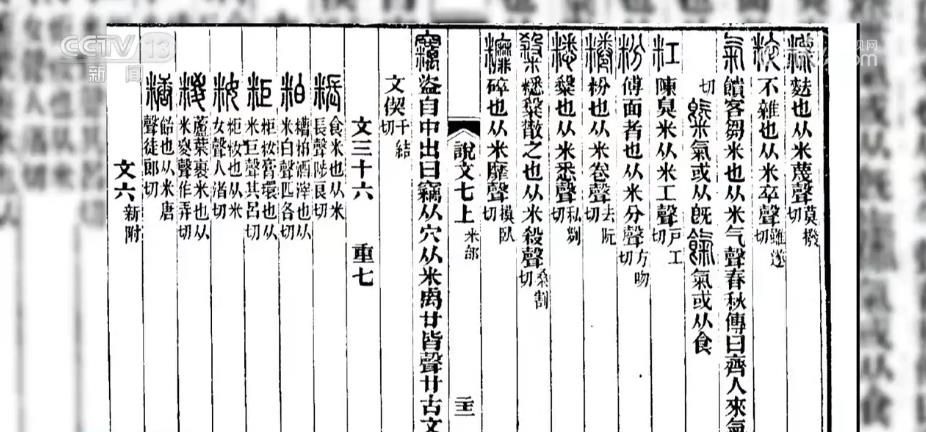 CCTV 13
新闻
麩也从米蔑聲莫撥切
粹不雜也从米卒聲雖遂切
氣饋客芻米也从米气聲春秋傳曰齊人來氣
切氣或从旣餼氣或从食
粠陳臭米从米工聲戶工切
粉傅面者也从米分聲方吻切
䊎粉也从米卷聲去阮切
也从米悉聲私列切
散之也从米殺聲桑割切
碎也从米靡聲摸臥切
說文七上 米部
竊盜自中出曰竊从穴从米禼廿皆聲廿古文
文偰千結切
文三十六 重七
粻食米也从米長聲陟良切
粕糟粕酒滓也从米白聲匹各切
粔粔籹膏環也从米巨聲其呂切
籹粔籹也从米女聲人渚切
糉蘆葉裹米也从米㚇聲作弄切
糖飴也从米唐聲徒郎切
文六 新附